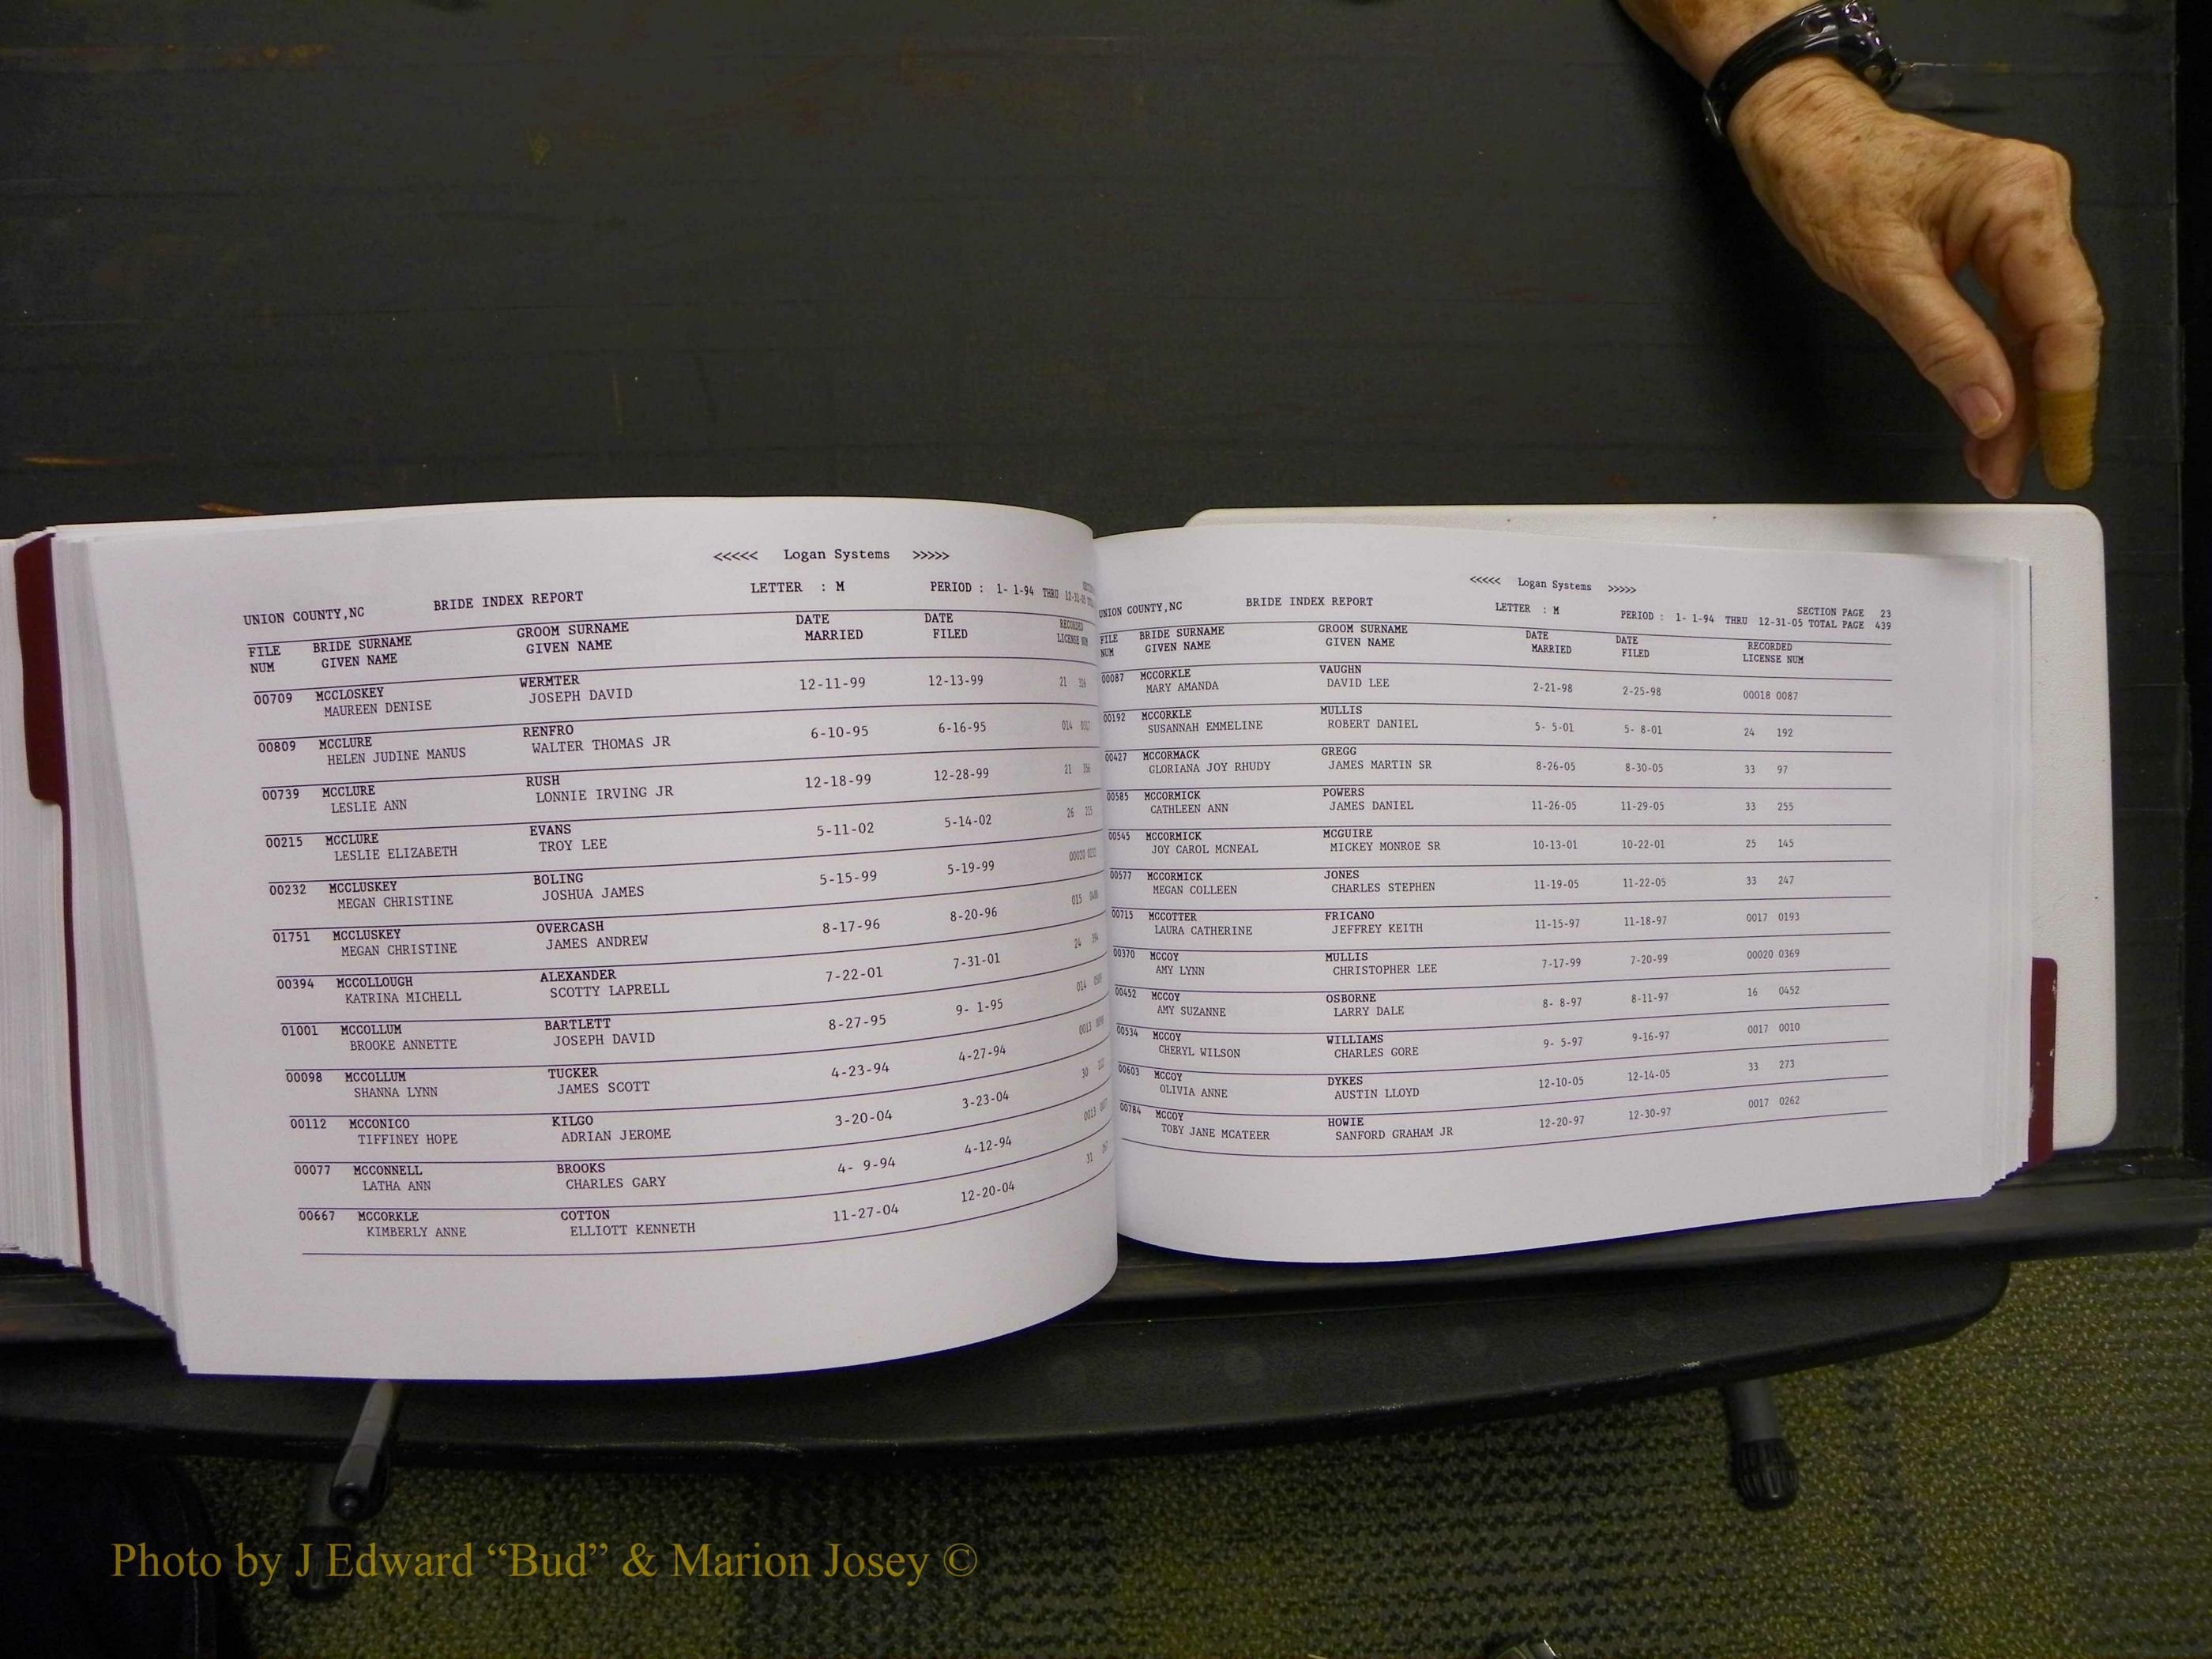 <<<<< Logan Systems >>>>>
UNION COUNTY,NC BRIDE INDEX REPORT LETTER : M PERIOD : 1- 1-94 THRU
FILE BRIDE SURNAME GROOM SURNAME DATE DATE RECORDED
NUM GIVEN NAME GIVEN NAME MARRIED FILED LICENSE NUM
00709 MCCLOSKEY WERMTER 12-11-99 12-13-99 21
MAUREEN DENISE JOSEPH DAVID
00809 MCCLURE RENFRO 6-10-95 6-16-95 014
HELEN JUDINE MANUS WALTER THOMAS JR
00739 MCCLURE RUSH 12-18-99 12-28-99 21
LESLIE ANN LONNIE IRVING JR
00215 MCCLURE EVANS 5-11-02 5-14-02 26
LESLIE ELIZABETH TROY LEE
00232 MCCLUSKEY BOLING 5-15-99 5-19-99 00020
MEGAN CHRISTINE JOSHUA JAMES
01751 MCCLUSKEY OVERCASH 8-17-96 8-20-96 015
MEGAN CHRISTINE JAMES ANDREW
00394 MCCOLLOUGH ALEXANDER 7-22-01 7-31-01 24
KATRINA MICHELL SCOTTY LAPRELL
01001 MCCOLLUM BARTLETT 8-27-95 9- 1-95 014
BROOKE ANNETTE JOSEPH DAVID
00098 MCCOLLUM TUCKER 4-23-94 4-27-94 0013
SHANNA LYNN JAMES SCOTT
00112 MCCONICO KILGO 3-20-04 3-23-04 30
TIFFINEY HOPE ADRIAN JEROME
00077 MCCONNELL BROOKS 4- 9-94 4-12-94 0013
LATHA ANN CHARLES GARY
00667 MCCORKLE COTTON 11-27-04 12-20-04 31
KIMBERLY ANNE ELLIOTT KENNETH
<<<<< Logan Systems >>>>>
SECTION PAGE 23
UNION COUNTY,NC BRIDE INDEX REPORT LETTER : M PERIOD : 1- 1-94 THRU 12-31-05 TOTAL PAGE 439
FILE BRIDE SURNAME GROOM SURNAME DATE DATE RECORDED
NUM GIVEN NAME GIVEN NAME MARRIED FILED LICENSE NUM
00087 MCCORKLE VAUGHN 2-21-98 2-25-98 00018 0087
MARY AMANDA DAVID LEE
00192 MCCORKLE MULLIS 5- 5-01 5- 8-01 24 192
SUSANNAH EMMELINE ROBERT DANIEL
00427 MCCORMACK GREGG 8-26-05 8-30-05 33 97
GLORIANA JOY RHUDY JAMES MARTIN SR
00585 MCCORMICK POWERS 11-26-05 11-29-05 33 255
CATHLEEN ANN JAMES DANIEL
00545 MCCORMICK MCGUIRE 10-13-01 10-22-01 25 145
JOY CAROL MCNEAL MICKEY MONROE SR
00577 MCCORMICK JONES 11-19-05 11-22-05 33 247
MEGAN COLLEEN CHARLES STEPHEN
00715 MCCOTTER FRICANO 11-15-97 11-18-97 0017 0193
LAURA CATHERINE JEFFREY KEITH
00370 MCCOY MULLIS 7-17-99 7-20-99 00020 0369
AMY LYNN CHRISTOPHER LEE
00452 MCCOY OSBORNE 8- 8-97 8-11-97 16 0452
AMY SUZANNE LARRY DALE
00534 MCCOY WILLIAMS 9- 5-97 9-16-97 0017 0010
CHERYL WILSON CHARLES GORE
00603 MCCOY DYKES 12-10-05 12-14-05 33 273
OLIVIA ANNE AUSTIN LLOYD
00784 MCCOY HOWIE 12-20-97 12-30-97 0017 0262
TOBY JANE MCATEER SANFORD GRAHAM JR
Photo by J Edward “Bud” & Marion Josey ©